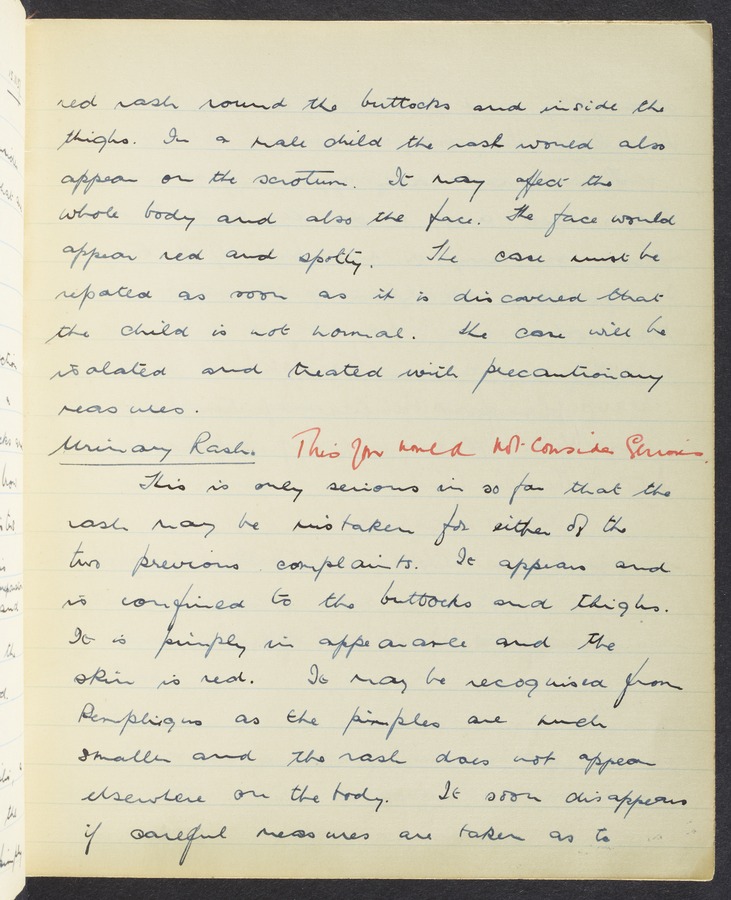 red rash round the buttocks and inside the
thighs. In a male child the rash would also
appear on the scrotum. It may affect the
whole body and also the face. The face would
appear red and spotty. The case must be
repoted as soon as it is discovered that
the child is not normal. The case will be
isolated and treated with precautionary
measures.
Urinary Rash. This you would not consider Serious.
This is only serious in so far that the
rash may be mistaken for either of the
two previous complaints. It appears and
is confined to the buttocks and thighs.
It is pimply in appearance and the
skin is red. It may be recognised from
Pemphigus as the pimples are much
smaller and the rash does not appear
elsewhere on the body. It soon disappears
if careful measures are taken as to